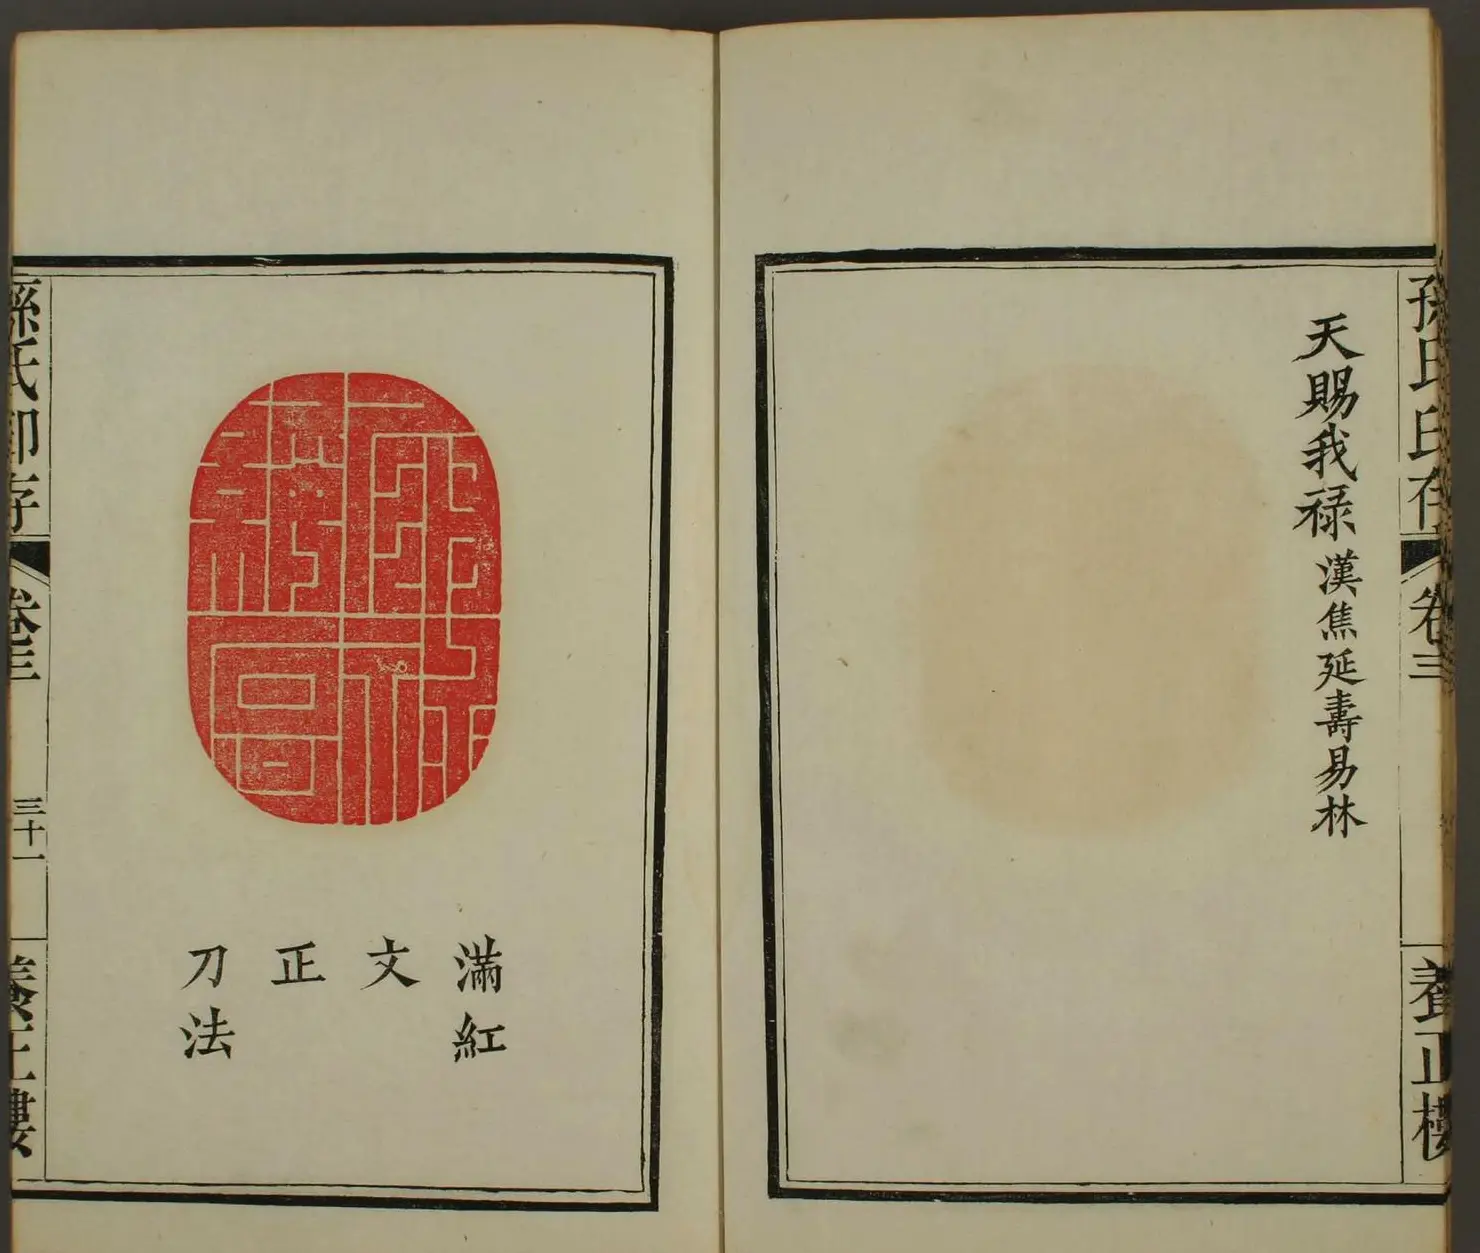 孫氏印存
卷三
養正樓
天賜我祿 漢焦延壽易林
滿紅
文
正
刀法
孫氏印存
卷三
三十一
養正樓